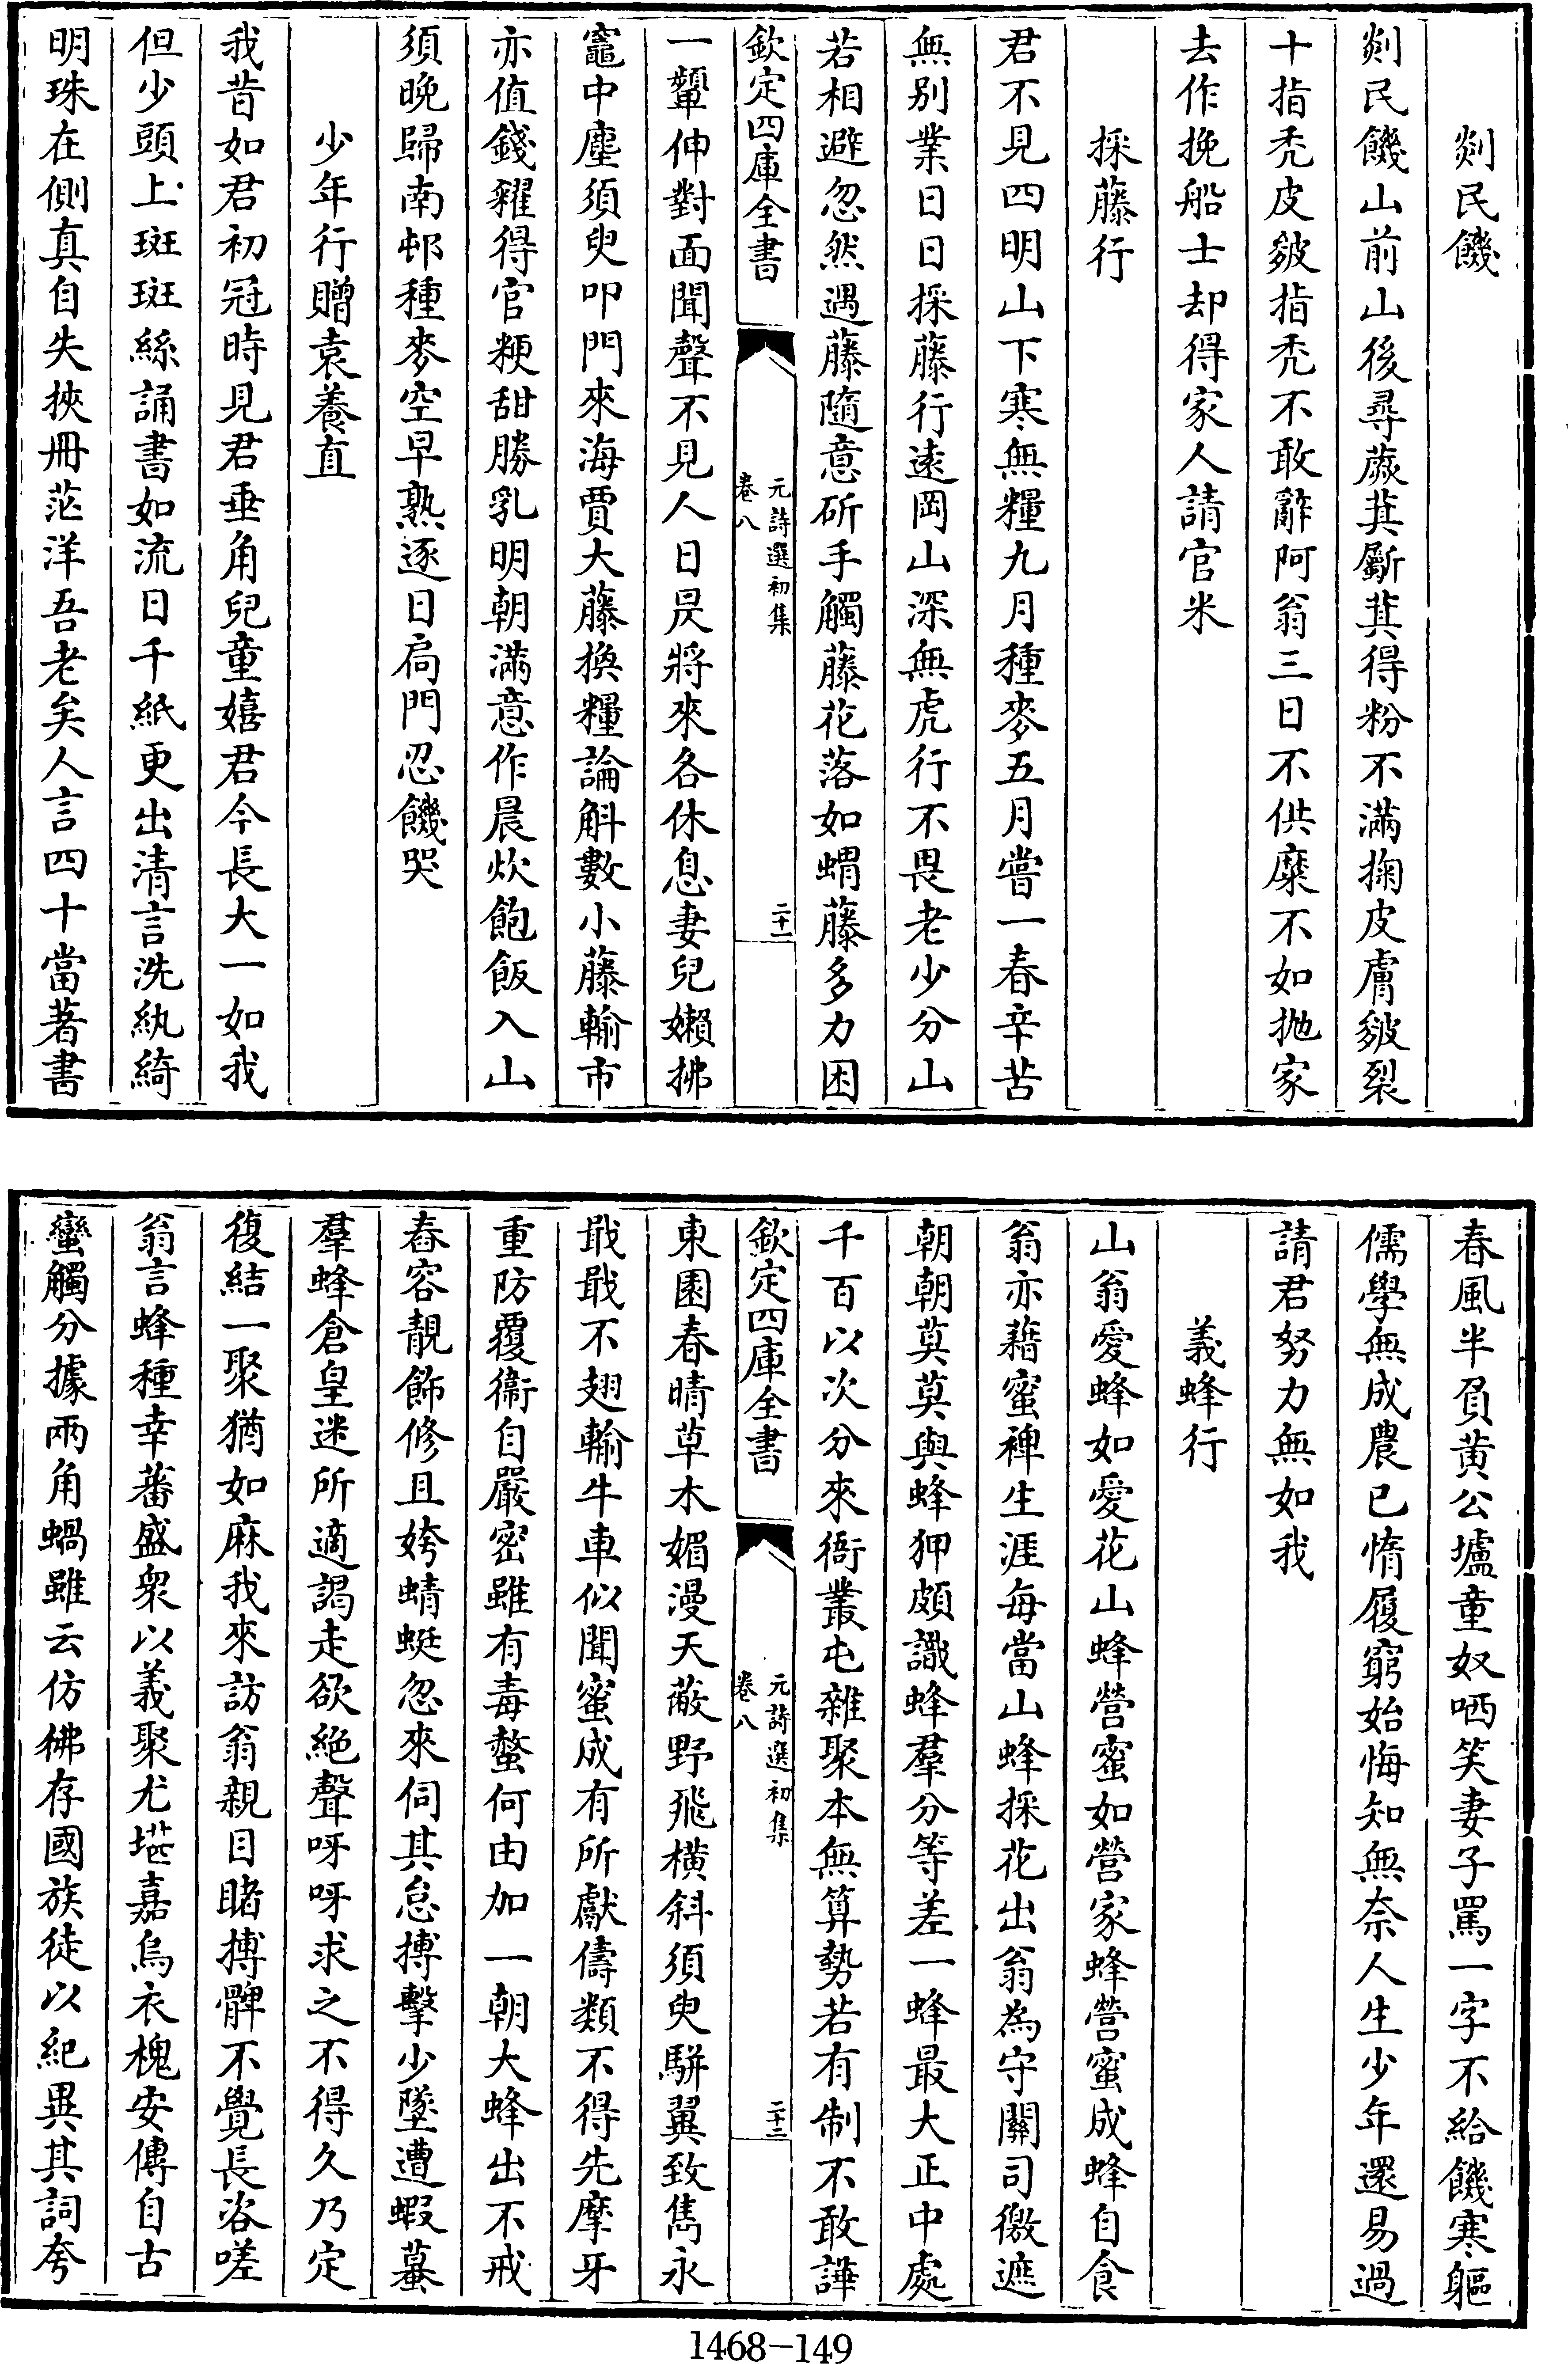 剡民饑
剡民饑山前山後尋蕨萁斸萁得粉不滿掬皮膚皴裂
十指禿皮皴指禿不敢辭阿翁三日不供糜不如抛家
去作挽船士却得家人請官米
採藤行
君不見四明山下寒無糧九月種麥五月嘗一春辛苦
無别業日日採藤行遠岡山深無虎行不畏老少分山
若相避忽然遇藤隨意斫手觸藤花落如蝟藤多力困
欽定四庫全書
元詩選初集
卷八
二十一
一顰伸對面聞聲不見人日昃將來各休息妻兒嬾拂
竈中塵須臾叩門來海賈大藤換糧論斛數小藤輸市
亦值錢糴得官粳甜勝乳明朝滿意作晨炊飽飯入山
須晚歸南邨種麥空早熟逐日扃門忍饑哭
少年行贈袁養直
我昔如君初冠時見君垂角兒童嬉君今長大一如我
但少頭上斑斑絲誦書如流日千紙更出清言洗紈綺
明珠在側真自失挾冊茫洋吾老矣人言四十當著書
春風半負黄公壚童奴哂笑妻子罵一字不給饑寒軀
儒學無成農已惰履窮始悔知無奈人生少年還易過
請君努力無如我
義蜂行
山翁愛蜂如愛花山蜂營蜜如營家蜂營蜜成蜂自食
翁亦藉蜜裨生涯每當山蜂採花出翁為守關司徼遮
朝朝莫莫與蜂狎頗識蜂羣分等差一蜂最大正中處
千百以次分來衙叢屯雜聚本無算勢若有制不敢譁
欽定四庫全書
元詩選初集
卷八
二十二
東園春晴草木媚漫天蔽野飛橫斜須臾駢翼致雋永
戢戢不翅輸牛車似聞蜜成有所獻儔類不得先摩牙
重防覆衞自嚴密雖有毒螫何由加一朝大蜂出不戒
舂容靚飾修且姱蜻蜓忽來伺其怠搏擊少墜遭蝦蟇
羣蜂倉皇迷所適謁走欲絶聲呀呀求之不得久乃定
復結一聚猶如麻我來訪翁親目睹搏髀不覺長咨嗟
翁言蜂種幸蕃盛衆以義聚尤堪嘉烏衣槐安傳自古
蠻觸分據兩角蝸雖云仿佛存國族徒以紀異其詞夸
1468-149